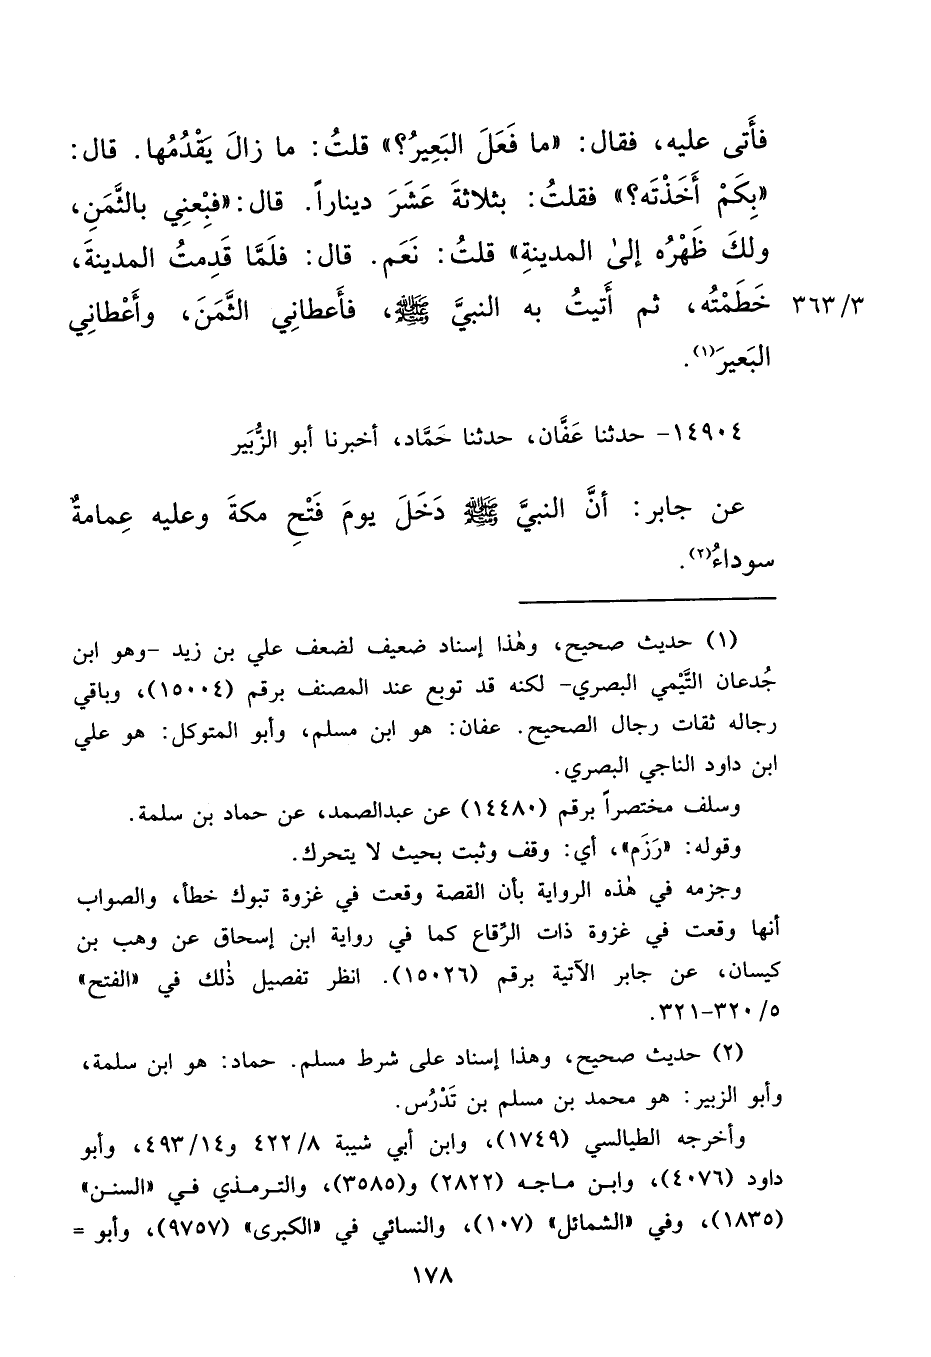 فأَتى عليه، فقال: «ما فَعَلَ البَعِيرُ؟» قلتُ: ما زالَ يَقْدُمُها. قال:
«بِكَمْ أَخَذْتَه؟» فقلتُ: بثلاثةَ عَشَرَ ديناراً. قال: «فبِعْنِي بالثَّمَنِ،
ولكَ ظَهْرُه إلىٰ المدينةِ» قلتُ: نَعَم. قال: فلَمَّا قَدِمتُ المدينةَ،
خَطَمْتُه، ثم أَتيتُ به النبيَّ ﷺ، فأَعطانِي الثَّمَنَ، وأَعْطانِي ٣٦٣/٣
البَعيرَ(١).
١٤٩٠٤- حدثنا عَفَّان، حدثنا حَمَّاد، أخبرنا أبو الزُّبَير
عن جابر: أنَّ النبيَّ ﷺ دَخَلَ يومَ فَتْحِ مكةَ وعليه عِمامةٌ
سوداءُ(٢).
(١) حديث صحيح، وهٰذا إسناد ضعيف لضعف علي بن زيد -وهو ابن
جُدعان التَّيْمي البصري- لكنه قد توبع عند المصنف برقم (١٥٠٠٤)، وباقي
رجاله ثقات رجال الصحيح. عفان: هو ابن مسلم، وأبو المتوكل: هو علي
ابن داود الناجي البصري.
وسلف مختصراً برقم (١٤٤٨٠) عن عبدالصمد، عن حماد بن سلمة.
وقوله: «رَزَم»، أي: وقف وثبت بحيث لا يتحرك.
وجزمه في هٰذه الرواية بأن القصة وقعت في غزوة تبوك خطأ، والصواب
أنها وقعت في غزوة ذات الرِّقاع كما في رواية ابن إسحاق عن وهب بن
كيسان، عن جابر الآتية برقم (١٥٠٢٦). انظر تفصيل ذٰلك في «الفتح»
٥/ ٣٢٠-٣٢١.
(٢) حديث صحيح، وهذا إسناد على شرط مسلم. حماد: هو ابن سلمة،
وأبو الزبير: هو محمد بن مسلم بن تَدْرُس.
وأخرجه الطيالسي (١٧٤٩)، وابن أبي شيبة ٤٢٢/٨ و٤٩٣/١٤، وأبو
داود (٤٠٧٦)، وابن ماجه (٢٨٢٢) و(٣٥٨٥)، والترمذي في «السنن»
(١٨٣٥)، وفي «الشمائل» (١٠٧)، والنسائي في «الكبرى» (٩٧٥٧)، وأبو =
١٧٨